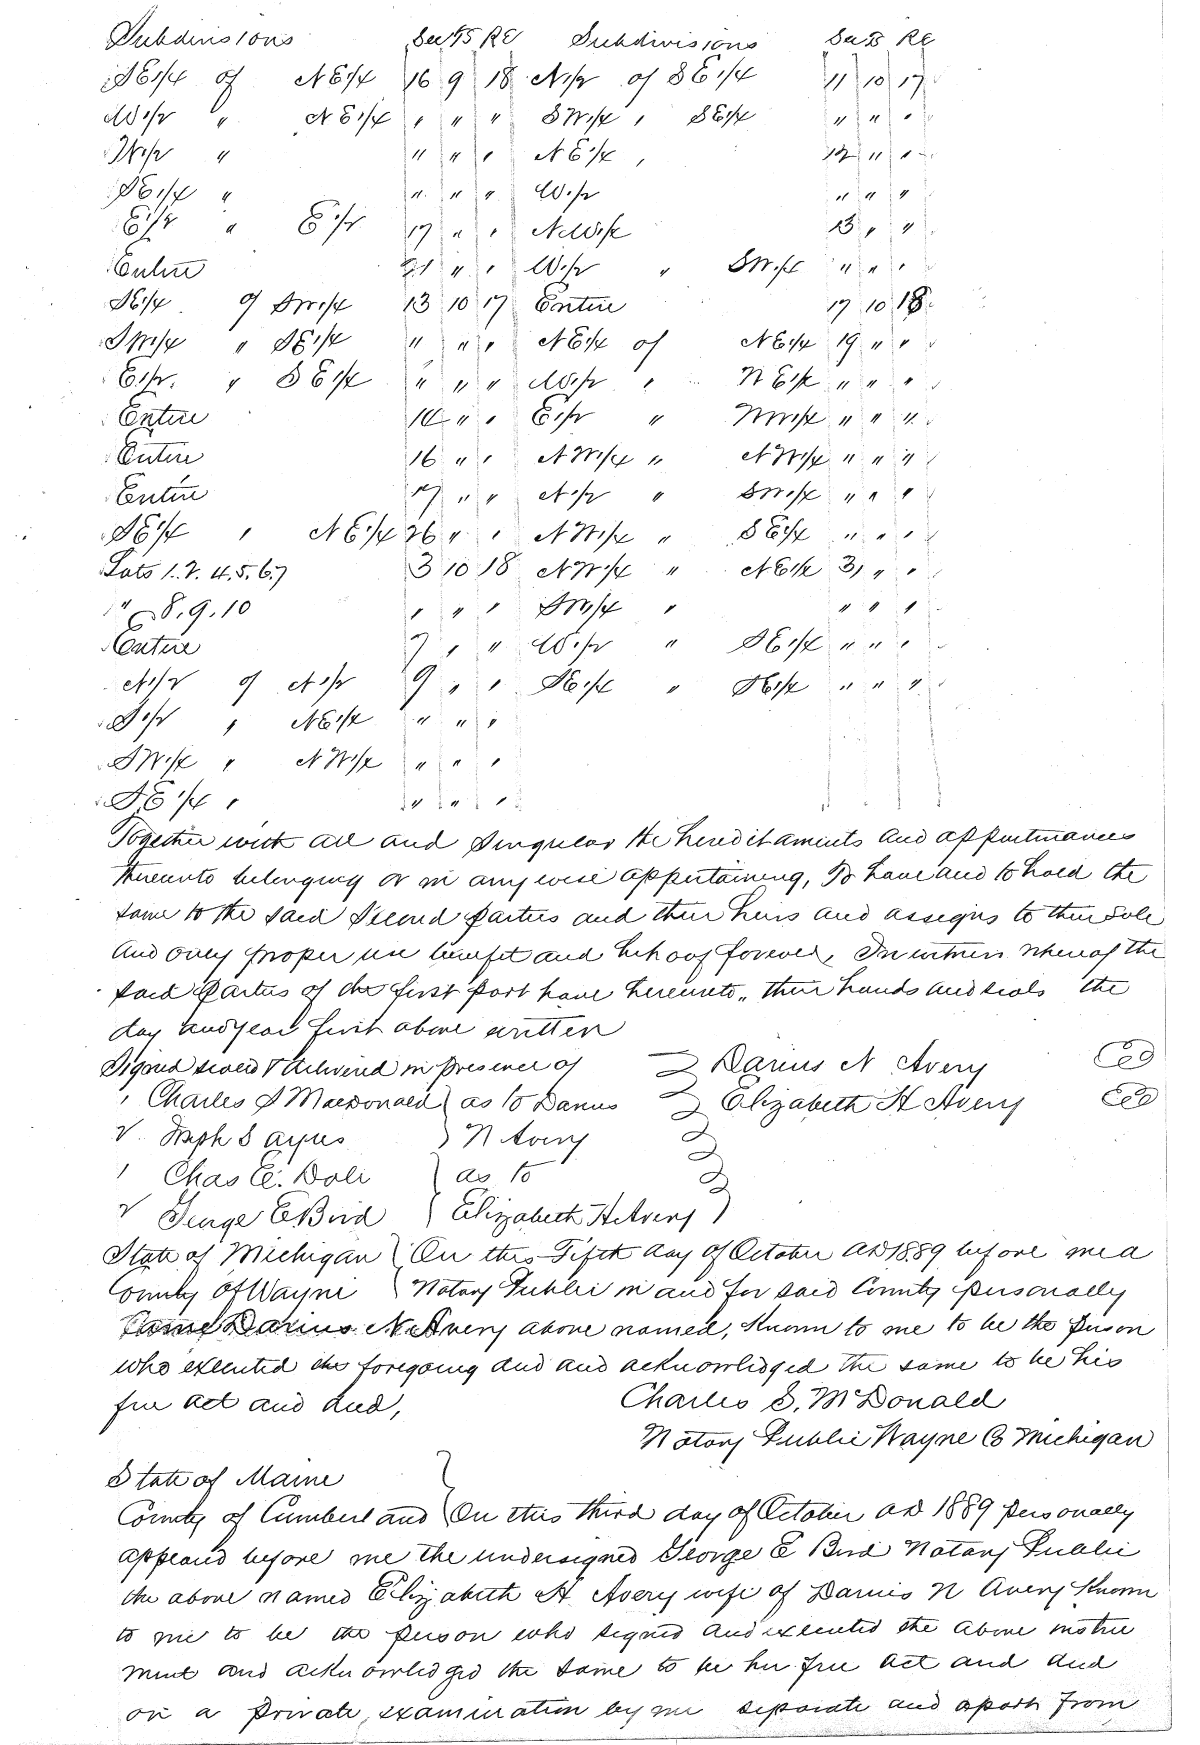 Subdivisions Sec T5 RE Subdivisions Sec T5 RE
SE1/4 of NE1/4 16 9 18 N1/2 of SE1/4 11 10 17
W1/2 " NE1/4 " " " SW1/4 " SE1/4 " " "
W1/2 " " " " NE1/4 " 12 " "
SE1/4 " " " " W1/2 " " "
E1/2 " E1/2 17 " " NW1/4 13 " "
Entire 21 " " W1/2 " SW1/4 " " "
SE1/4 of SW1/4 13 10 17 Entire 17 10 18
SW1/4 " SE1/4 " " " NE1/4 of NE1/4 19 " "
E1/2 " SE1/4 " " " W1/2 " NE1/4 " " "
Entire 14 " " E1/2 " NW1/4 " " "
Entire 16 " " NW1/4 " NW1/4 " " "
Entire 17 " " N1/2 " SW1/4 " " "
SE1/4 " NE1/4 26 " " NW1/4 " SE1/4 " " "
Lots 1.2.4.5.6.7 3 10 18 NW1/4 " NE1/4 31 " "
" 8.9.10 " " " SW1/4 " " " "
Entire 7 " " W1/2 " SE1/4 " " "
N1/2 of N1/2 9 " " SE1/4 " SE1/4 " " "
S1/2 " NE1/4 " " "
SW1/4 " NW1/4 " " "
SE1/4 " " " "
Together with all and singular the hereditaments and appurtenances
thereunto belonging or in anywise appertaining, To have and to hold the
same to the said Second Parties and their heirs and assigns to their sole
and only proper use benefit and behoof forever, In witness whereof the
said Parties of the first part have hereunto " their hands and seals the
day and year first above written
Signed sealed & delivered in presence of Darius N Avery
Charles S Macdonald } as to Darius Elizabeth H Avery
Joseph Sayus } N Avery
Chas E. Dole } as to
George E Bird } Elizabeth H Avery
State of Michigan } On this Fifth day of October AD 1889 before me a
County of Wayne } Notary Public in and for said County personally
Came Darius N Avery above named, known to me to be the person
who executed the foregoing deed and acknowledged the same to be his
free act and deed, Charles S. McDonald
Notary Public Wayne Co Michigan
State of Maine }
County of Cumberland } On this third day of October AD 1889 personally
appeared before me the undersigned George E Bird Notary Public
the above named Elizabeth H Avery wife of Darius N Avery known
to me to be the person who signed and executed the above instru
ment and acknowledged the same to be her free act and deed
on a private examination by me separate and apart from